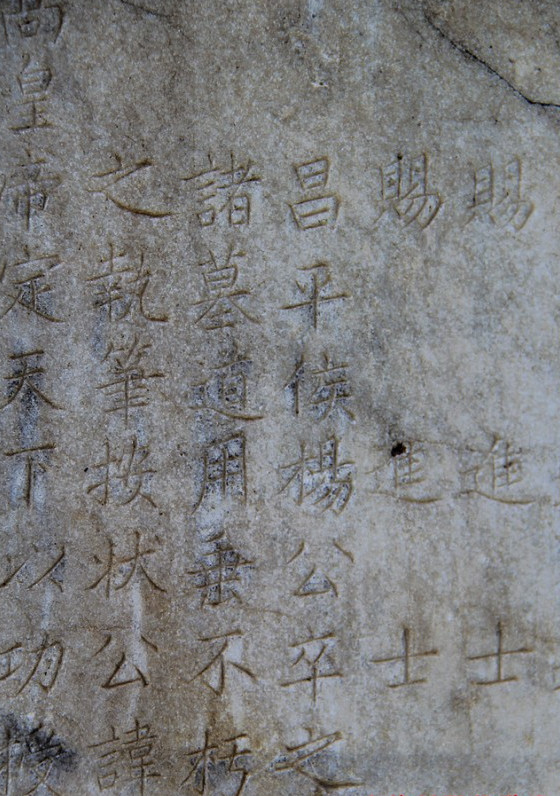 賜進士
賜進士
昌平侯楊公卒之
諸墓道用垂不朽
之執筆按狀公諱
高皇帝定天下以功授